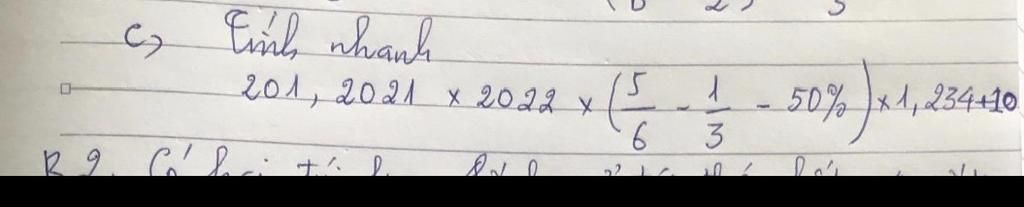 c) Tính nhanh
201,2021 × 2022 × (5/6 - 1/3 - 50%) × 1,234+10